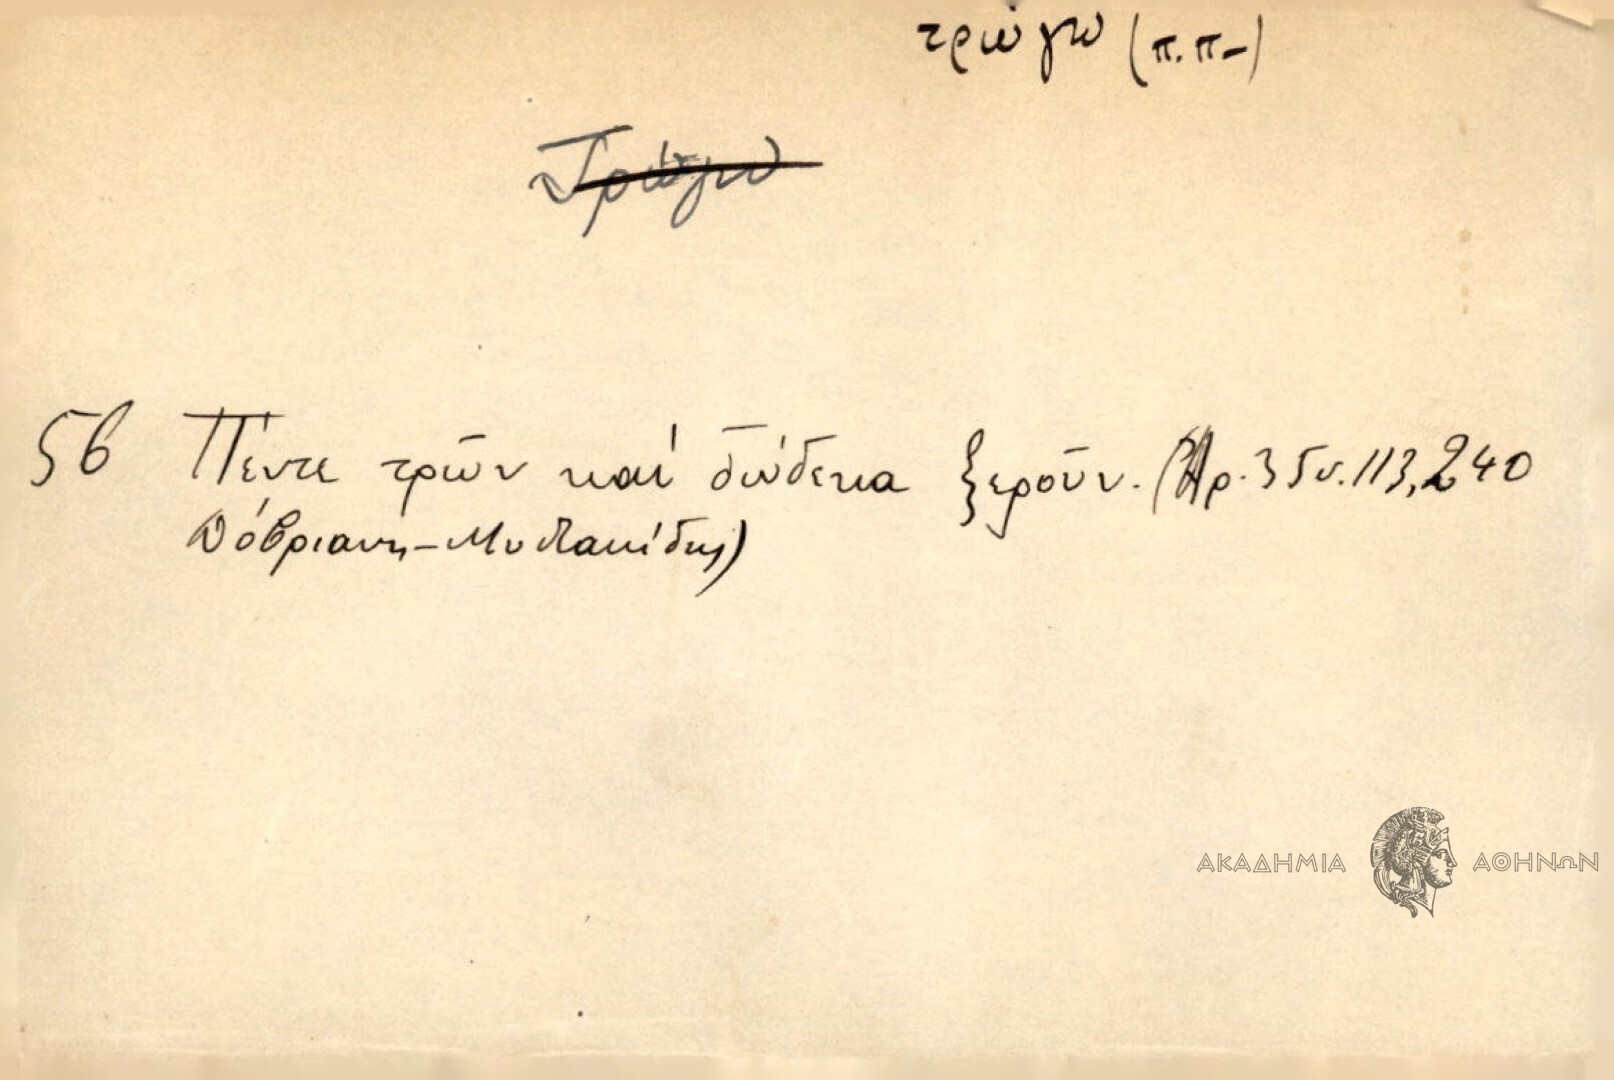 τρώγω (π.π-)
Τρώγω
56 Πέντε τρῶν καί δώδεκα ξεροῦν. (Ἀρ. 35 σ. 113, 240
Δόβριανη-Μυστακίδης)
ΑΚΑΔΗΜΙΑ ΑΘΗΝΩΝ